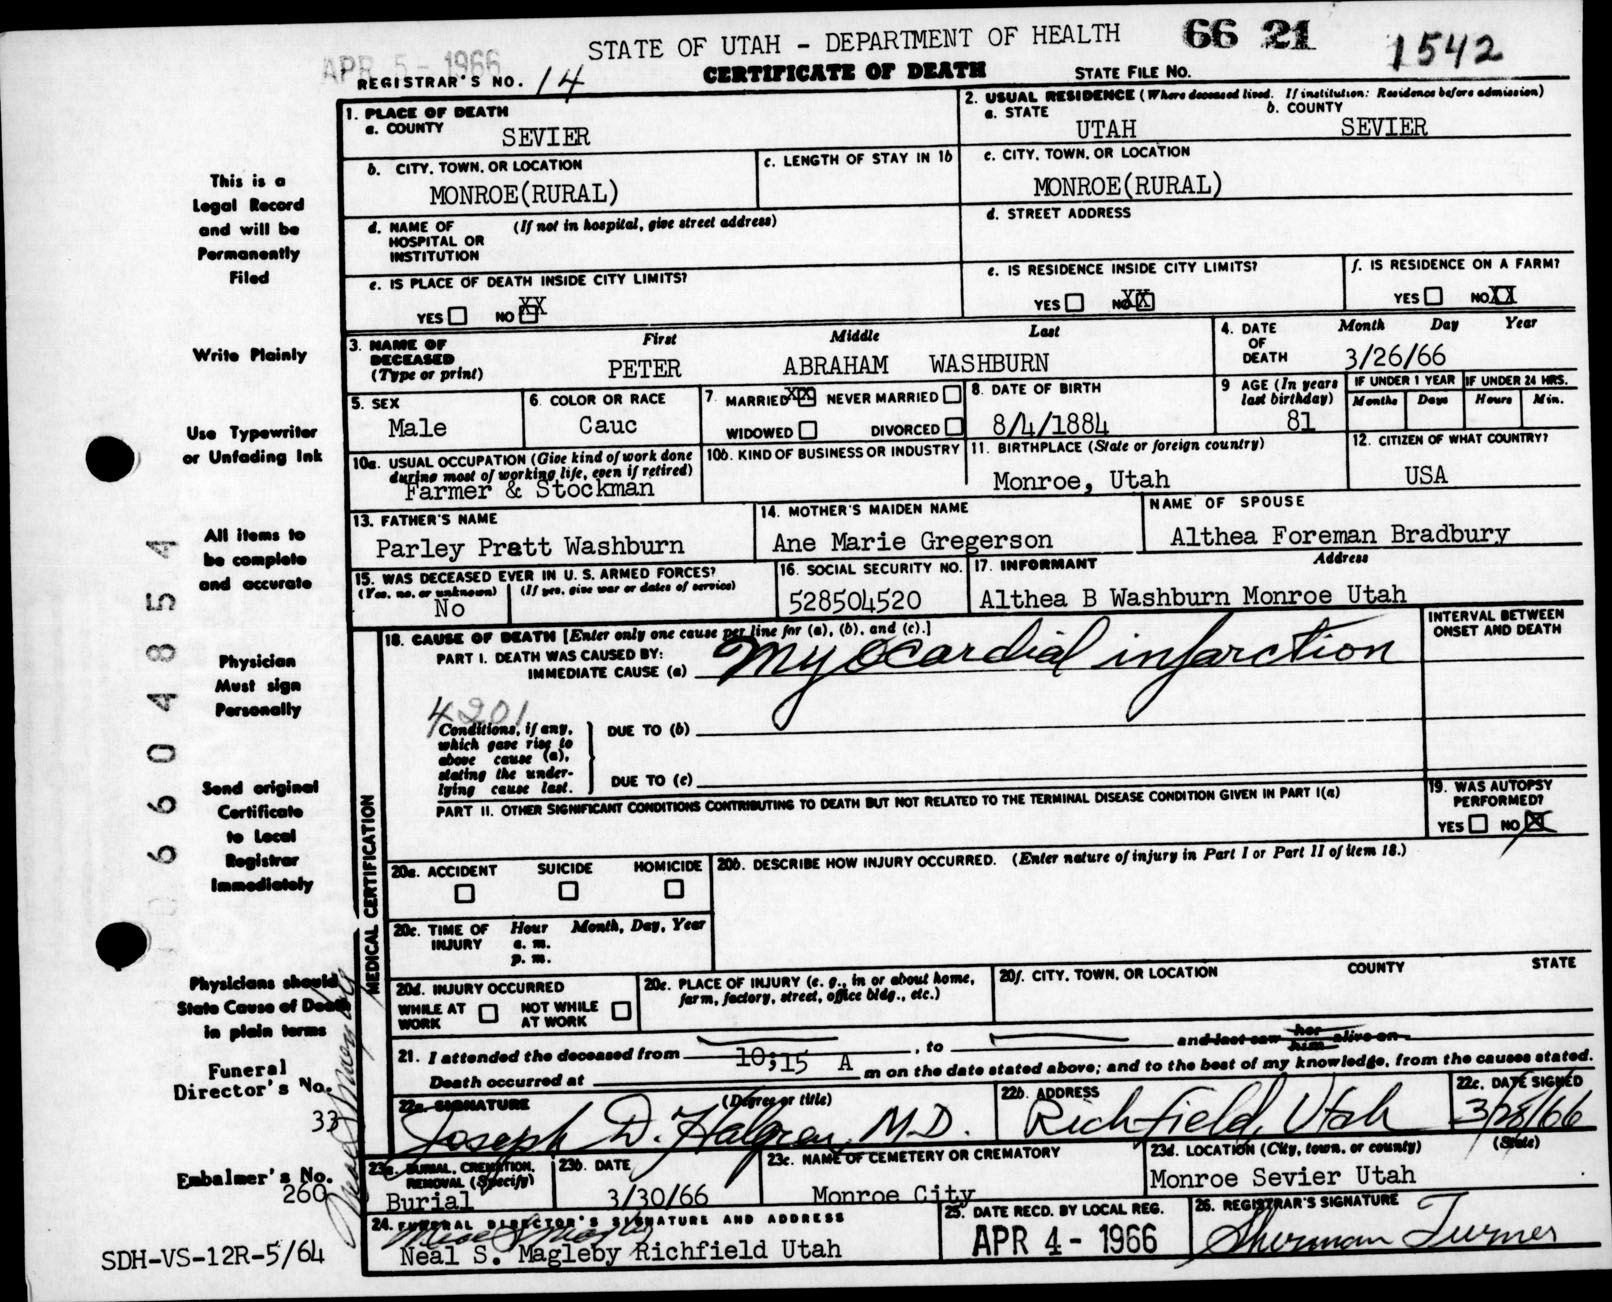 APR 5 - 1966
STATE OF UTAH - DEPARTMENT OF HEALTH 66 21 1542
REGISTRAR'S NO. 14 CERTIFICATE OF DEATH STATE FILE NO.
1. PLACE OF DEATH
a. COUNTY
SEVIER
2. USUAL RESIDENCE (Where deceased lived. If institution: Residence before admission)
a. STATE b. COUNTY
UTAH SEVIER
b. CITY, TOWN, OR LOCATION
MONROE(RURAL)
c. LENGTH OF STAY IN 1b
c. CITY, TOWN, OR LOCATION
MONROE(RURAL)
d. NAME OF HOSPITAL OR INSTITUTION (If not in hospital, give street address)
d. STREET ADDRESS
e. IS PLACE OF DEATH INSIDE CITY LIMITS?
YES NO XX
e. IS RESIDENCE INSIDE CITY LIMITS?
YES NO XX
f. IS RESIDENCE ON A FARM?
YES NO XX
3. NAME OF DECEASED (Type or print)
First Middle Last
PETER ABRAHAM WASHBURN
4. DATE OF DEATH Month Day Year
3/26/66
5. SEX
Male
6. COLOR OR RACE
Cauc
7. MARRIED XX NEVER MARRIED
WIDOWED DIVORCED
8. DATE OF BIRTH
8/4/1884
9 AGE (In years last birthday)
81
IF UNDER 1 YEAR
Months Days
IF UNDER 24 HRS.
Hours Min.
10a. USUAL OCCUPATION (Give kind of work done during most of working life, even if retired)
Farmer & Stockman
10b. KIND OF BUSINESS OR INDUSTRY
11. BIRTHPLACE (State or foreign country)
Monroe, Utah
12. CITIZEN OF WHAT COUNTRY?
USA
13. FATHER'S NAME
Parley Pratt Washburn
14. MOTHER'S MAIDEN NAME
Ane Marie Gregerson
NAME OF SPOUSE
Althea Foreman Bradbury
15. WAS DECEASED EVER IN U. S. ARMED FORCES?
(Yes, no, or unknown) (If yes, give war or dates of service)
No
16. SOCIAL SECURITY NO.
528504520
17. INFORMANT Address
Althea B Washburn Monroe Utah
MEDICAL CERTIFICATION
18. CAUSE OF DEATH [Enter only one cause per line for (a), (b), and (c).]
PART I. DEATH WAS CAUSED BY:
IMMEDIATE CAUSE (a) Myocardial infarction
INTERVAL BETWEEN ONSET AND DEATH
4201
Conditions, if any, which gave rise to above cause (a), stating the underlying cause last.
DUE TO (b)
DUE TO (c)
PART II. OTHER SIGNIFICANT CONDITIONS CONTRIBUTING TO DEATH BUT NOT RELATED TO THE TERMINAL DISEASE CONDITION GIVEN IN PART I(a)
19. WAS AUTOPSY PERFORMED?
YES NO X
20a. ACCIDENT SUICIDE HOMICIDE
20b. DESCRIBE HOW INJURY OCCURRED. (Enter nature of injury in Part I or Part II of item 18.)
20c. TIME OF INJURY Hour Month, Day, Year
a. m.
p. m.
20d. INJURY OCCURRED
WHILE AT WORK NOT WHILE AT WORK
20e. PLACE OF INJURY (e. g., in or about home, farm, factory, street, office bldg., etc.)
20f. CITY, TOWN, OR LOCATION COUNTY STATE
21. I attended the deceased from , to and last saw her him alive on
Death occurred at 10;15 A m on the date stated above; and to the best of my knowledge, from the causes stated.
22a. SIGNATURE (Degree or title)
Joseph D. Halgren M.D.
22b. ADDRESS
Richfield, Utah
22c. DATE SIGNED
3/28/66
23a. BURIAL, CREMATION, REMOVAL (Specify)
Burial
23b. DATE
3/30/66
23c. NAME OF CEMETERY OR CREMATORY
Monroe City
23d. LOCATION (City, town, or county) (State)
Monroe Sevier Utah
24. FUNERAL DIRECTOR'S SIGNATURE AND ADDRESS
Neal S Magleby
Neal S. Magleby Richfield Utah
25. DATE RECD. BY LOCAL REG.
APR 4 - 1966
26. REGISTRAR'S SIGNATURE
Sherman Turner
This is a
Legal Record
and will be
Permanently
Filed
Write Plainly
Use Typewriter
or Unfading Ink
All items to
be complete
and accurate
Physician
Must sign
Personally
Send original
Certificate
to Local
Registrar
Immediately
Physicians should
State Cause of Death
in plain terms
Funeral
Director's No.
33
Embalmer's No.
260
Neal S Magleby
660484854
SDH-VS-12R-5/64